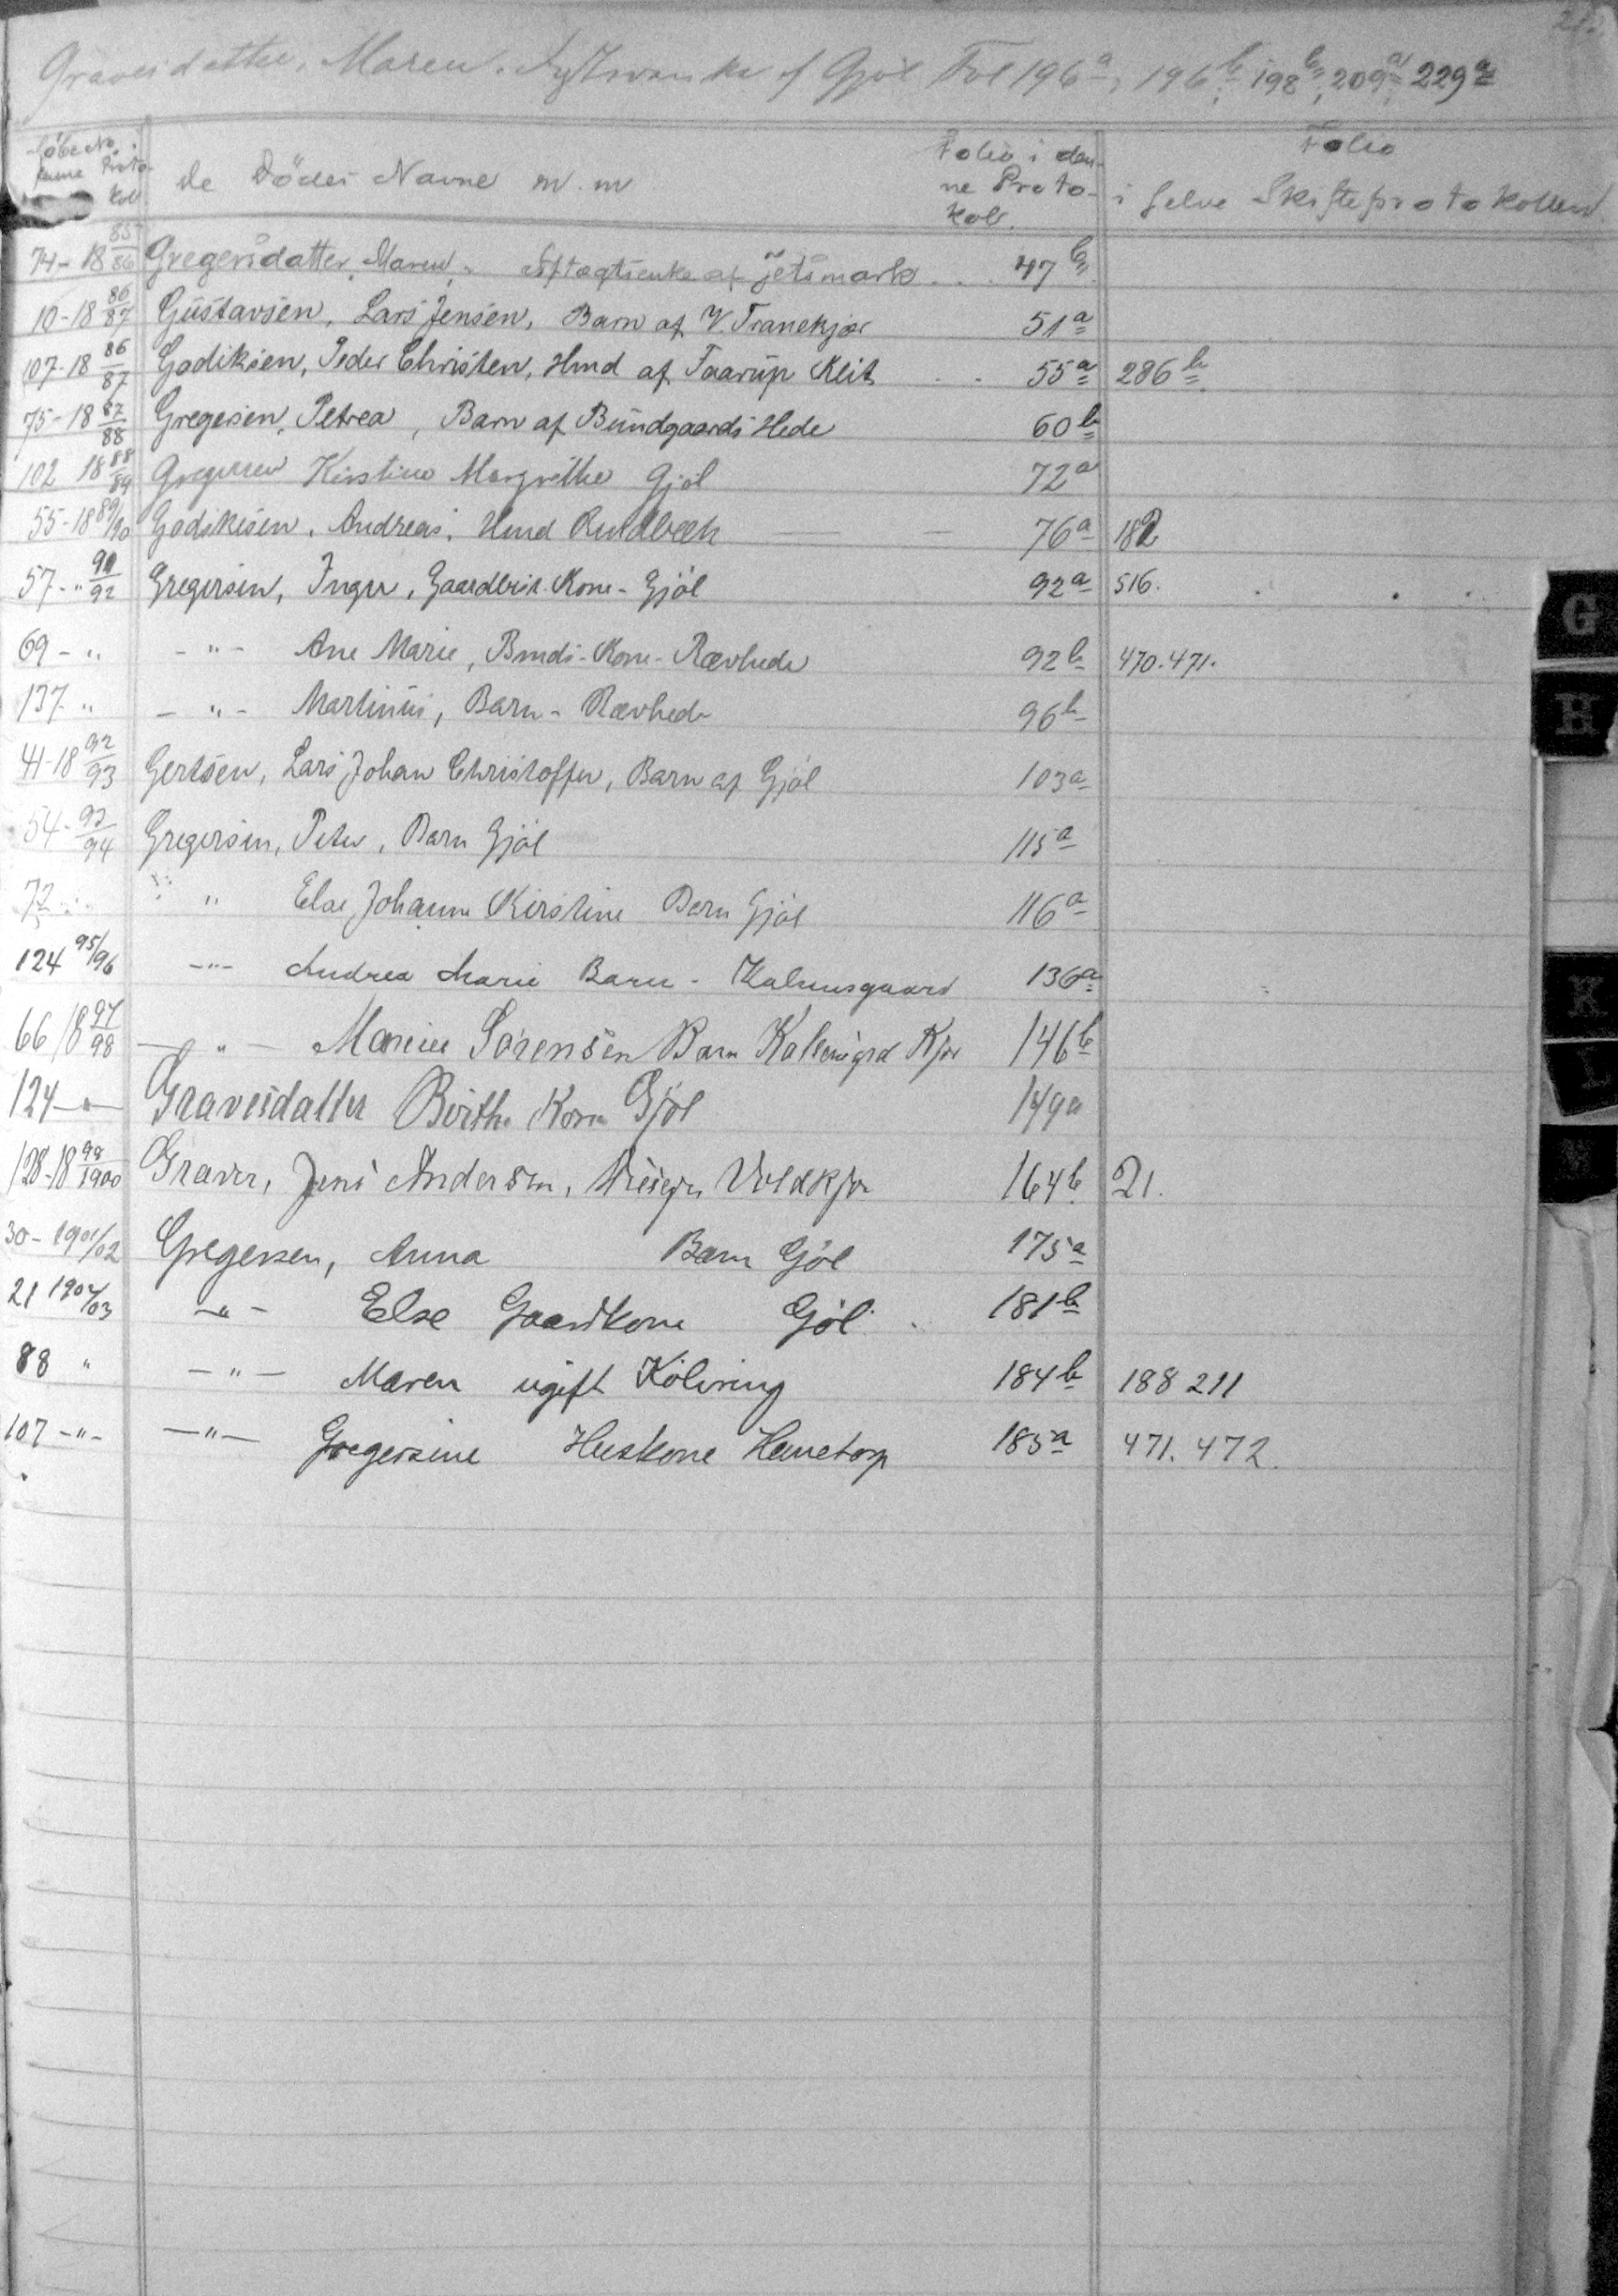 Gravesdatter, Maren. af Gjöl Fol 196a, 196b, 198b, 209a, 229a
Löbe No. i denne Protokol
De Dödes Navne m.m
Folio i denne Protokol.
Folio i selve Skifteprotokollen
74-1885/86 Gregersdatter, Maren, Aftægtsenke af Jetsmark ... 47b
10-1886/87 Gustavsen, Lars Jensen, Barn af V. Tranekjær 51a
107-1886/87 Godiksen, Peder Christen, Hmd af Faarup Klit .. 55a 286b
75-1887/88 Gregersen, Petrea, Barn af Bundgaards Hede 60b
102 1888/89 Gregersen Kirstine Margrethe Gjöl 72a
55-1889/90 Godiksen, Andreas, Hmd Rendbæk — — 76a 182
57-" 91/92 Gregersen, Inger, Gaardbest. Kone - Gjöl 92a 516.
69-" -"- Ane Marie, Bmds-Kone-Rævhede 92b 470.471.
137-" -"- Martinus, Barn-Rævhede 96b
41-1892/93 Gertsen, Lars Johan Christoffer, Barn af Gjöl 103a
54-93/94 Gregersen, Peter, Barn Gjöl 115a
72 " " Else Johanne Kirstine Barn Gjöl 116a
124 95/96 -"- Andrea Marie Barn - Kalmsgaard 136a
66 1897/98 -"- Marius Sörensen Barn 146b
124 -"- Gravesdatter Birthe Kone Gjöl 149a
128-1899/1900 Graver, Jens Andersen, Voldkjær 164b 21.
30-1901/02 Gregersen, Anna Barn Gjöl 175a
21 1902/03 -"- Else Gaardkone Gjöl. 181b
88 " -"- Maren ugift Kölvring 184b 188 211
107-"- -"- Gregersine Huskone Hunetorp 185a 471.472.
G
H
K
L